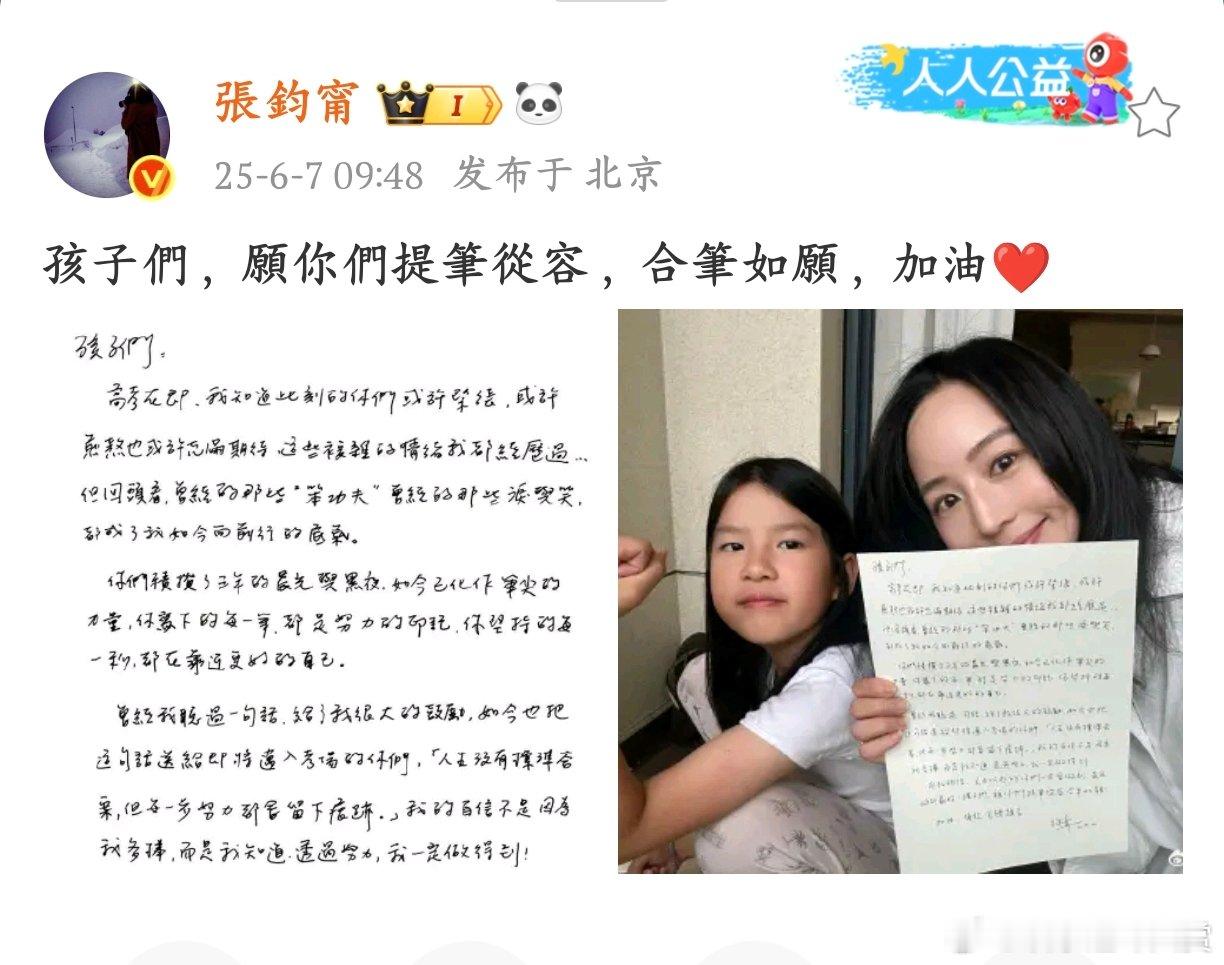 張鈞甯
I
人人公益
25-6-7 09:48 发布于 北京
孩子們，願你們提筆從容，合筆如願，加油❤️
孩子們。
高考在即、我知道此刻的你們或許緊繃，或許
煎熬也或許充滿期待 這些複雜的情緒我都經歷過...
但回頭看，曾經的那些"笨功夫"曾經的那些淚與笑，
都成了我如今向前行的底氣。
你們積攢了三年的晨光與黑夜，如今已化作筆尖的
力量，你寫下的每一筆，都是努力的印記，你堅持的每
一秒，都在靠近更好的自己。
曾經我聽過一句話，給了我很大的鼓勵，如今也把
這句話送給即將邁入考場的你們，「人生沒有標準答
案，但每一步努力都會留下痕跡。」我的自信不是因為
我多棒，而是我知道，透過努力，我一定做得到！
孩子們。